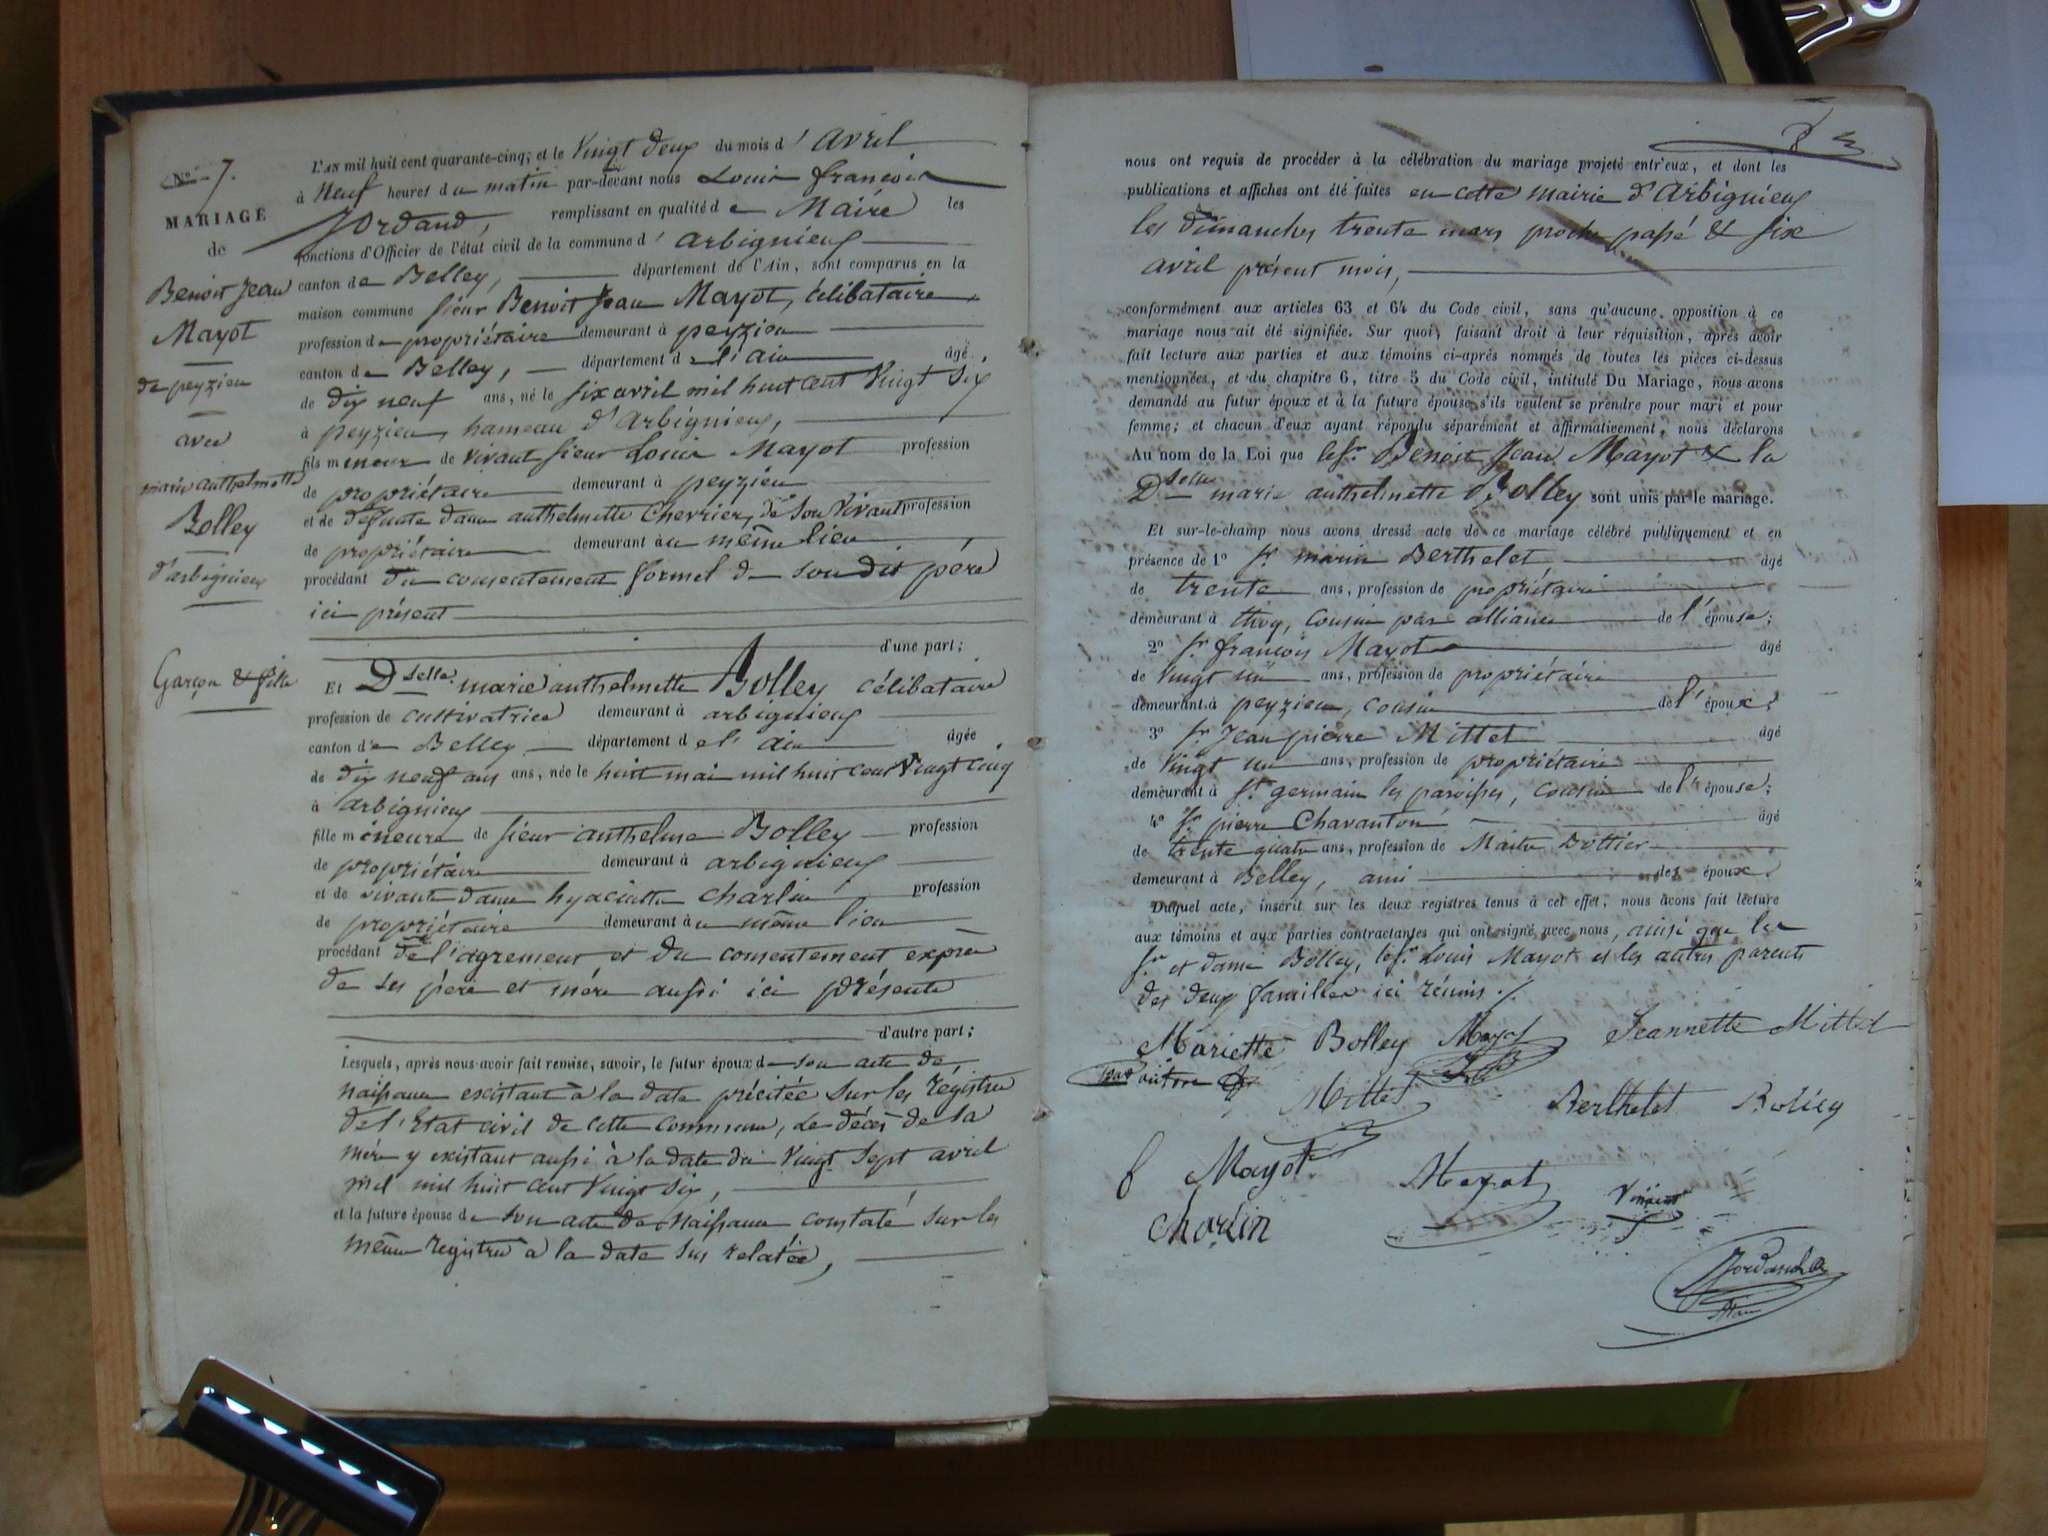 N.º 7.
MARIAGE
de
Benoit Jean
Mayot
de peyzieu
avec
marie anthelmette
Bolley
d'arbignieux
Garçon & fille
L'AN mil huit cent quarante-cinq; et le Vingt deux du mois d'avril
à Neuf heures du matin par-devant nous Louis françois
Jordand, remplissant en qualité de Maire les
fonctions d'Officier de l'état civil de la commune d'arbignieux
canton de Belley, département de l'Ain, sont comparus en la
maison commune sieur Benoit Jean Mayot, célibataire
profession de propriétaire demeurant à peyzieu
canton de Belley, département de l'ain âgé
de dix neuf ans, né le six avril mil huit cent Vingt Six
à peyzieu, hameau d'Arbignieux,
fils mineur de vivant sieur Louis Mayot profession
de propriétaire demeurant à peyzieu
et de défunte dame anthelmette Chevrier, de son Vivant profession
de propriétaire demeurant au même lieu
procédant du consentement formel de son dit père
ici présent
d'une part;
Et Dselle marie anthelmette Bolley célibataire
profession de cultivatrice demeurant à arbignieux
canton de Belley département de l'ain âgée
de dix neuf ans ans, née le huit mai mil huit cent Vingt cinq
à arbignieux
fille mineure de sieur anthelme Bolley profession
de propriétaire demeurant à arbignieux
et de vivante dame hyacinthe Charlin profession
de propriétaire demeurant au même lieu
procédant de l'agrement et du consentement exprès
de ses père et mère aussi ici présents
d'autre part;
Lesquels, après nous avoir fait remise, savoir, le futur époux de son acte de
naissance existant à la date précitée sur les régistres
de l'Etat civil de cette commune, le décès de la
mère y existant aussi à la date du Vingt Sept avril
mil mil huit cent Vingt Six,
et la future épouse de son acte de naissance constaté sur les
même registres à la date sus relatée,
nous ont requis de procéder à la célébration du mariage projeté entr'eux, et dont les
publications et affiches ont été faites en cette mairie d'Arbignieux
les dimanches trente mars proche passé & six
avril présent mois,
conformément aux articles 63 et 64 du Code civil, sans qu'aucune opposition à ce
mariage nous ait été signifiée. Sur quoi, faisant droit à leur réquisition, après avoir
fait lecture aux parties et aux témoins ci-après nommés de toutes les pièces ci-dessus
mentionnées, et du chapitre 6, titre 5 du Code civil, intitulé Du Mariage, nous avons
demandé au futur époux et à la future épouse s'ils veulent se prendre pour mari et pour
femme; et chacun d'eux ayant répondu séparément et affirmativement, nous déclarons
Au nom de la Loi que le Sr. Benoit Jean Mayot & la
Dselle marie anthelmette Bolley sont unis par le mariage.
Et sur-le-champ nous avons dressé acte de ce mariage célébré publiquement et en
présence de 1º Sr. marin Berthelet âgé
de trente ans, profession de propriétaire
demeurant à thoy, cousin par alliance de l'épouse;
2º Sr. françois Mayot âgé
de Vingt un ans, profession de propriétaire
demeurant à peyzieu, cousin de l'époux;
3º Sr. Jean pierre Mittet âgé
de Vingt un ans, profession de propriétaire
demeurant à St. germain les paroisses, cousin de l'épouse;
4º Sr. pierre Chavanton âgé
de trente quatre ans, profession de Maitre Bottier
demeurant à Belley, ami des époux.
Duquel acte, inscrit sur les deux registres tenus à cet effet, nous avons fait lecture
aux témoins et aux parties contractantes qui ont signé avec nous, ainsi que les
Sr. et dame Bolley, le Sr. Louis Mayot et les autres parents
des deux familles ici réunis ./.
Mariette Bolley Mayot Jeannette Mittet
Mittet Berthelet Bolley
f Mayot Mayot Vincent
Charlin
Jordand